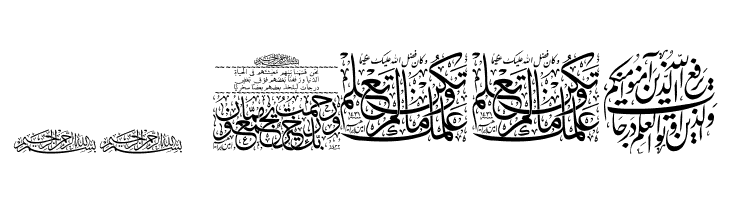 يرفع الله الذين آمنوا منكم
والذين أوتوا العلم درجات
وعلمك ما لم تكن تعلم
وكان فضل الله عليك عظيما
وعلمك ما لم تكن تعلم
وكان فضل الله عليك عظيما
بسم الله الرحمن الرحيم
نحن قسمنا بينهم معيشتهم في الحياة
الدنيا ورفعنا بعضهم فوق بعض
درجات ليتخذ بعضهم بعضا سخريا
ورحمت ربك خير مما يجمعون
بسم الله الرحمن الرحيم
بسم الله الرحمن الرحيم